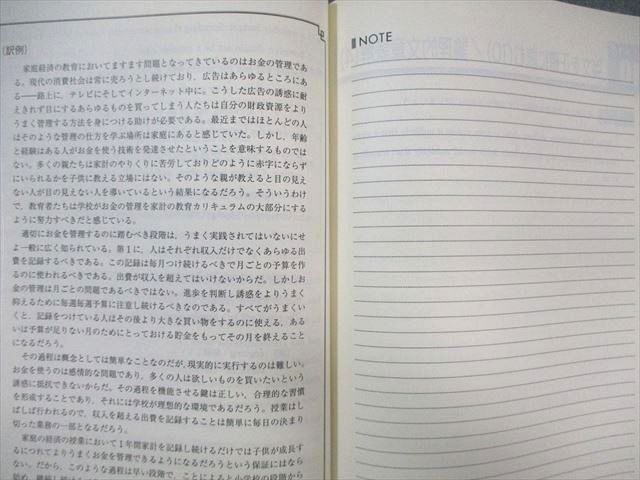 (訳例)
家庭経済の教育においてますます問題となってきているのはお金の管理であ
る。現代の消費社会は常に売ろうとし続けており、広告はあらゆるところにあ
る——路上に、テレビにそしてインターネット中に。こうした広告の誘惑に耐
えきれず目にするあらゆるものを買ってしまう人たちは自分の財政資源をより
うまく管理する方法を身につける助けが必要である。最近まではほとんどの人
はそのような管理の仕方を学ぶ場所は家庭にあると感じていた。しかし、年齢
と経験はある人がお金を使う技術を発達させたということを意味するものでは
ない。多くの親たちは家計のやりくりに苦労しておりどのように赤字にならず
にいられるかを子供に教える立場にはない。そのような親が教えると目の見え
ない人が目の見えない人を導いているという結果になるだろう。そういうわけ
で、教育者たちは学校がお金の管理を家計の教育カリキュラムの大部分にする
ように努力すべきだと感じている。
適切にお金を管理するのに踏むべき段階は、うまく実践されてはいないにせ
よ一般に広く知られている。第1に、人はそれぞれ収入だけでなくあらゆる出
費を記録するべきである。この記録は毎月つけ続けるべきで月ごとの予算を作
るのに使われるべきである。出費が収入を超えてはいけないからだ。しかしお
金の管理は月ごとの問題であるべきではない。進歩を判断し誘惑をよりうまく
抑えるために毎週毎週予算に注意し続けるべきなのである。すべてがうまくい
くと、記録をつけている人はその後より大きな買い物をするのに使える、ある
いは予算が足りない月のためにとっておける貯金をもってその月を終えること
になるだろう。
その過程は概念としては簡単なことなのだが、現実的に実行するのは難しい。
お金を使うのは感情的な問題であり、多くの人は欲しいものを買いたいという
誘惑に抵抗できないからだ。その過程を機能させる鍵は正しい、合理的な習慣
を形成することであり、それには学校が理想的な環境であるだろう。授業はし
ばしば行われるので、収入を超える出費を記録することは簡単に毎日の決まり
切った業務の一部となるだろう。
家庭の経済の授業において1年間家計を記録し続けるだけでは子供が成長す
るにつれてよりうまくお金を管理できるようになるだろうという保証にはなら
ない。だから、このような過程は早い段階で、ことによると小学校の段階から
NOTE